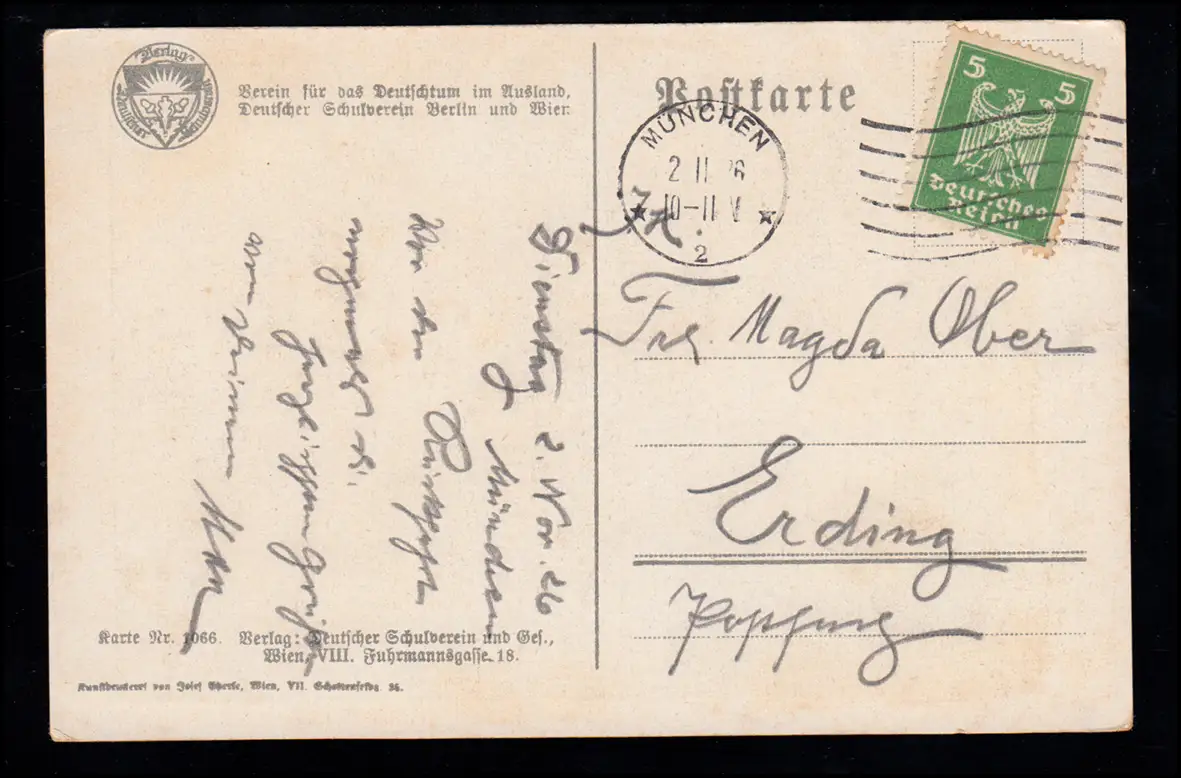 Verlag
Deutscher Schulverein
Verein für das Deutschtum im Ausland,
Deutscher Schulverein Berlin und Wien
Postkarte
5 5
Deutsches
Reich
MÜNCHEN
2 11 26
10-11 V
2
Dienstag 2. Nov. 26
München
Vor der Rückfahrt
Frl. Magda Ober
Erding
Karte Nr. 1066. Verlag: Deutscher Schulverein und Ges.,
Wien, VIII. Fuhrmannsgasse 18.
Kunstdruckerei von Josef Eberle, Wien, VII. Schottenfeldg. 36.